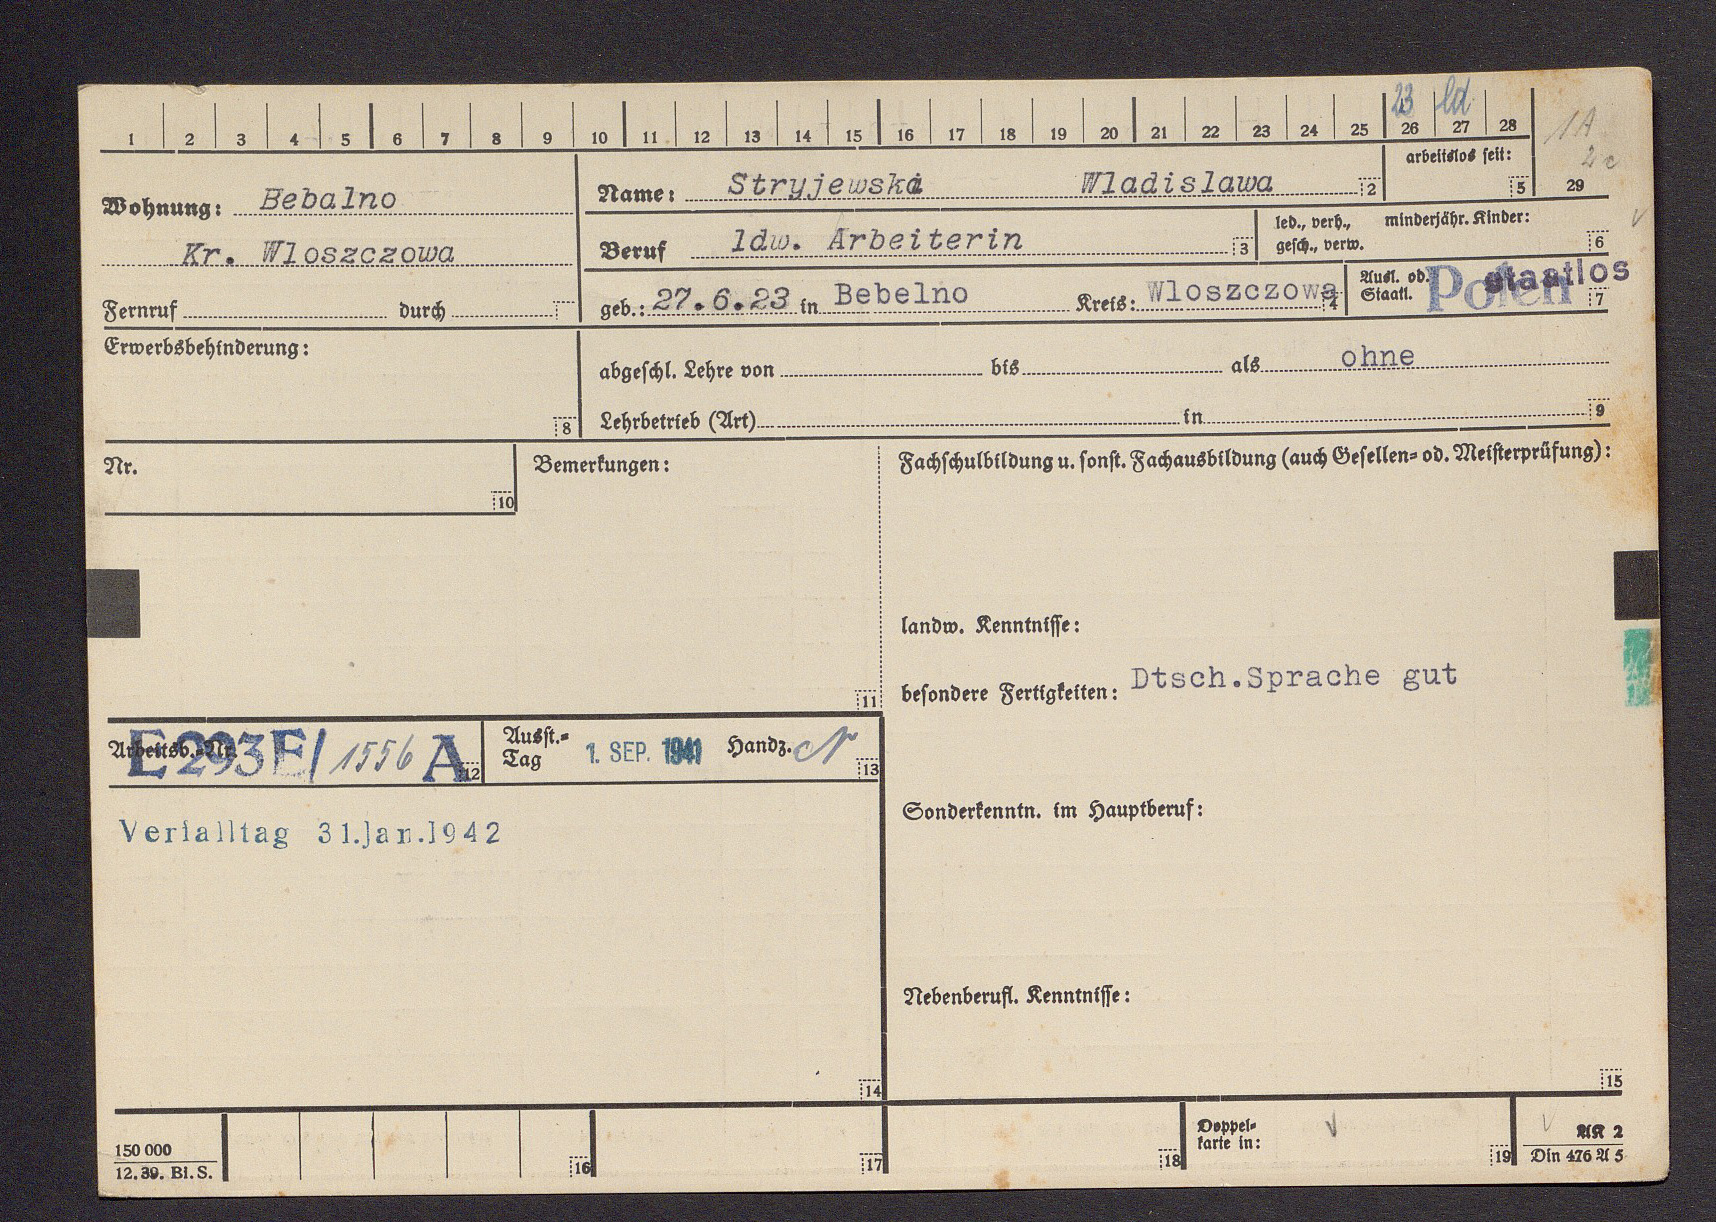 23 ld
1 2 3 4 5 6 7 8 9 10 11 12 13 14 15 16 17 18 19 20 21 22 23 24 25 26 27 28
1A
2c
29
Wohnung: Bebalno
Kr. Wloszczowa
Fernruf durch
Name: Stryjewska Wladislawa 2
arbeitslos seit: 5
Beruf ldw. Arbeiterin 3
led., verh., minderjähr. Kinder:
gesch., verw. 6
geb.: 27.6.23 in Bebelno Kreis: Wloszczowa 4
Ausl. od.
Staatl. Polen staatlos 7
Erwerbsbehinderung:
8
abgeschl. Lehre von bis als ohne
Lehrbetrieb (Art) in 9
Nr.
10
Bemerkungen:
11
Fachschulbildung u. sonst. Fachausbildung (auch Gesellen- od. Meisterprüfung):
landw. Kenntnisse:
besondere Fertigkeiten: Dtsch.Sprache gut
Arbeitsb.-Nr. E293E/1556 A 12
Ausst.-
Tag 1. SEP. 1941 Handz. 13
Verfalltag 31.Jan.1942
14
Sonderkenntn. im Hauptberuf:
Nebenberufl. Kenntnisse:
15
150 000
12. 39. Bl. S.
16
17
18
Doppel-
karte in:
19
AK 2
Din 476 A 5